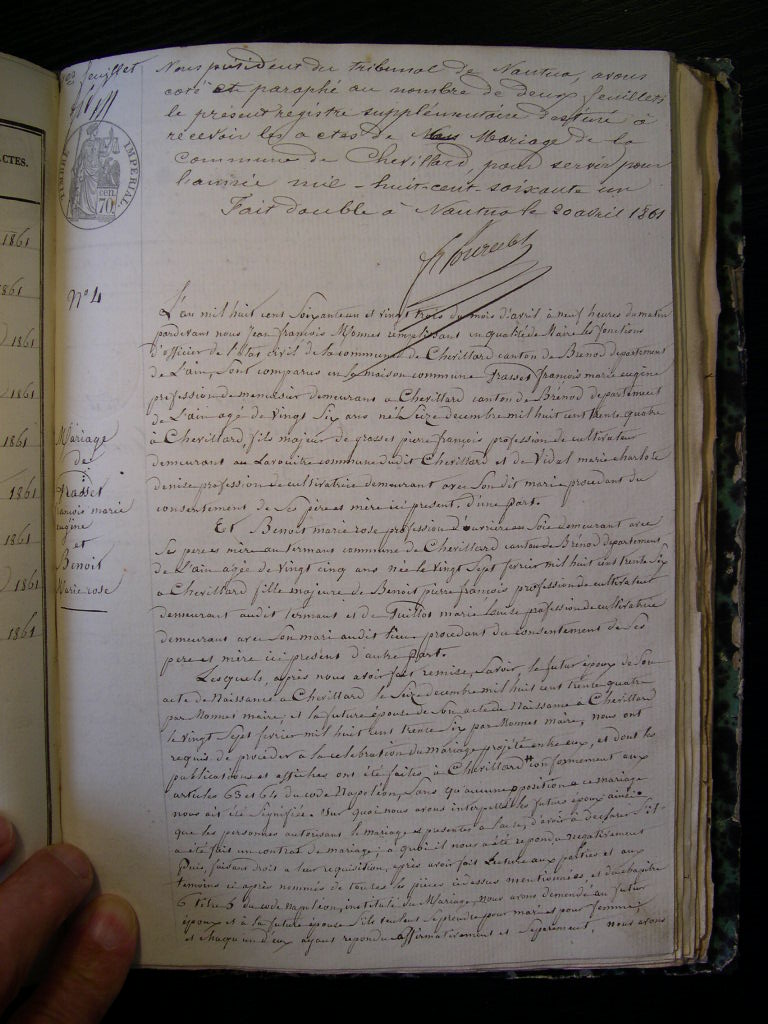 ACTES.
1861
1861
1861
1861
1861
1861
1861
1861
1861
feuillet
TIMBRE IMPERIAL
70
Nous président du tribunal de Nantua, avons
coté et paraphé au nombre de deux feuillets
le présent registre supplémentaire destiné à
recevoir les actes de Mariage de la
commune de Chevillard, pour servir pour
l'année mil-huit-cent-soixante un
Fait double à Nantua le 20 avril 1861
N° 4
Mariage
de
Grasset
françois marie
eugène
et
Benoit
Marie rose
L'an mil huit cent Soixante un et vingt trois du mois d'avril à neuf heures du matin
pardevant nous Jean françois Monnet remplissant en qualité de Maire les fonctions
d'officier de l'état civil de la commune de Chevillard canton de Brénod département
de L'ain, Sont comparus en la maison commune Grasset françois marie eugène
profession de menuisier demeurant a Chevillard canton de Brénod departement
de L'ain agé de Vingt Six ans né le Seize decembre mil huit cent trente quatre
à Chevillard, fils majeur de grasset pierre françois profession de cultivateur
demeurant au commune dudit Chevillard et de Vidal marie charlote
denise profession de cultivatrice demeurant avec Son dit mari procedant du
consentement de Ses pere et mère ici present, d'une part.
Et Benoit marie rose profession d'ouvrière en Soie demeurant avec
Ses pere et mère au termant commune de Chevillard canton de Brénod departement
de L'ain agée de Vingt cinq ans née le Vingt Sept fevrier mil huit cent trente Six
a Chevillard fille majeure de Benoit pierre françois profession de cultivateur
demeurant audit termant et de Guillot marie louise profession de cultivatrice
demeurant avec Son mari audit lieu procedant du consentement de Ses
pere et mère ici present d'autre part.
Lesquels, après nous avoir fait remise, Savoir le futur époux de Son
acte de Naissance a Chevillard le Seize decembre mil huit cent trente quatre
par Monnet maire, et la future épouse de Son acte de Naissance a Chevillard
le Vingt Sept fevrier mil huit cent trente Six par Monnet maire, nous ont
requis de proceder a la celebration du Mariage projété entre eux, et dont les
publications et affiches ont été faites à Chevillard conformement aux
articles 63 et 64 du code Napoléon, Sans qu'aucune opposition a ce mariage
nous ait été Signifiée. Sur quoi nous avons interpellé les futurs époux ainsi
que les personnes autorisant le mariage et presentes a l'acte, d'avoir à declarer S'il
a été fait un contrat de mariage; a quoi il nous a été repondu negativement
Puis, faisant droit a leur requisition, après avoir fait Lecture aux parties et aux
temoins ci après nommés de toutes les pièces ci dessus mentionnées, et du chapitre
6 titre 5 du code Napoléon, intitulé du Mariage, Nous avons demandé au futur
époux et à la future épouse S'ils veulent Se prendre pour mari et pour femme;
et chaqu'un d'eux ayant repondu affirmativement et Séparément, nous avons